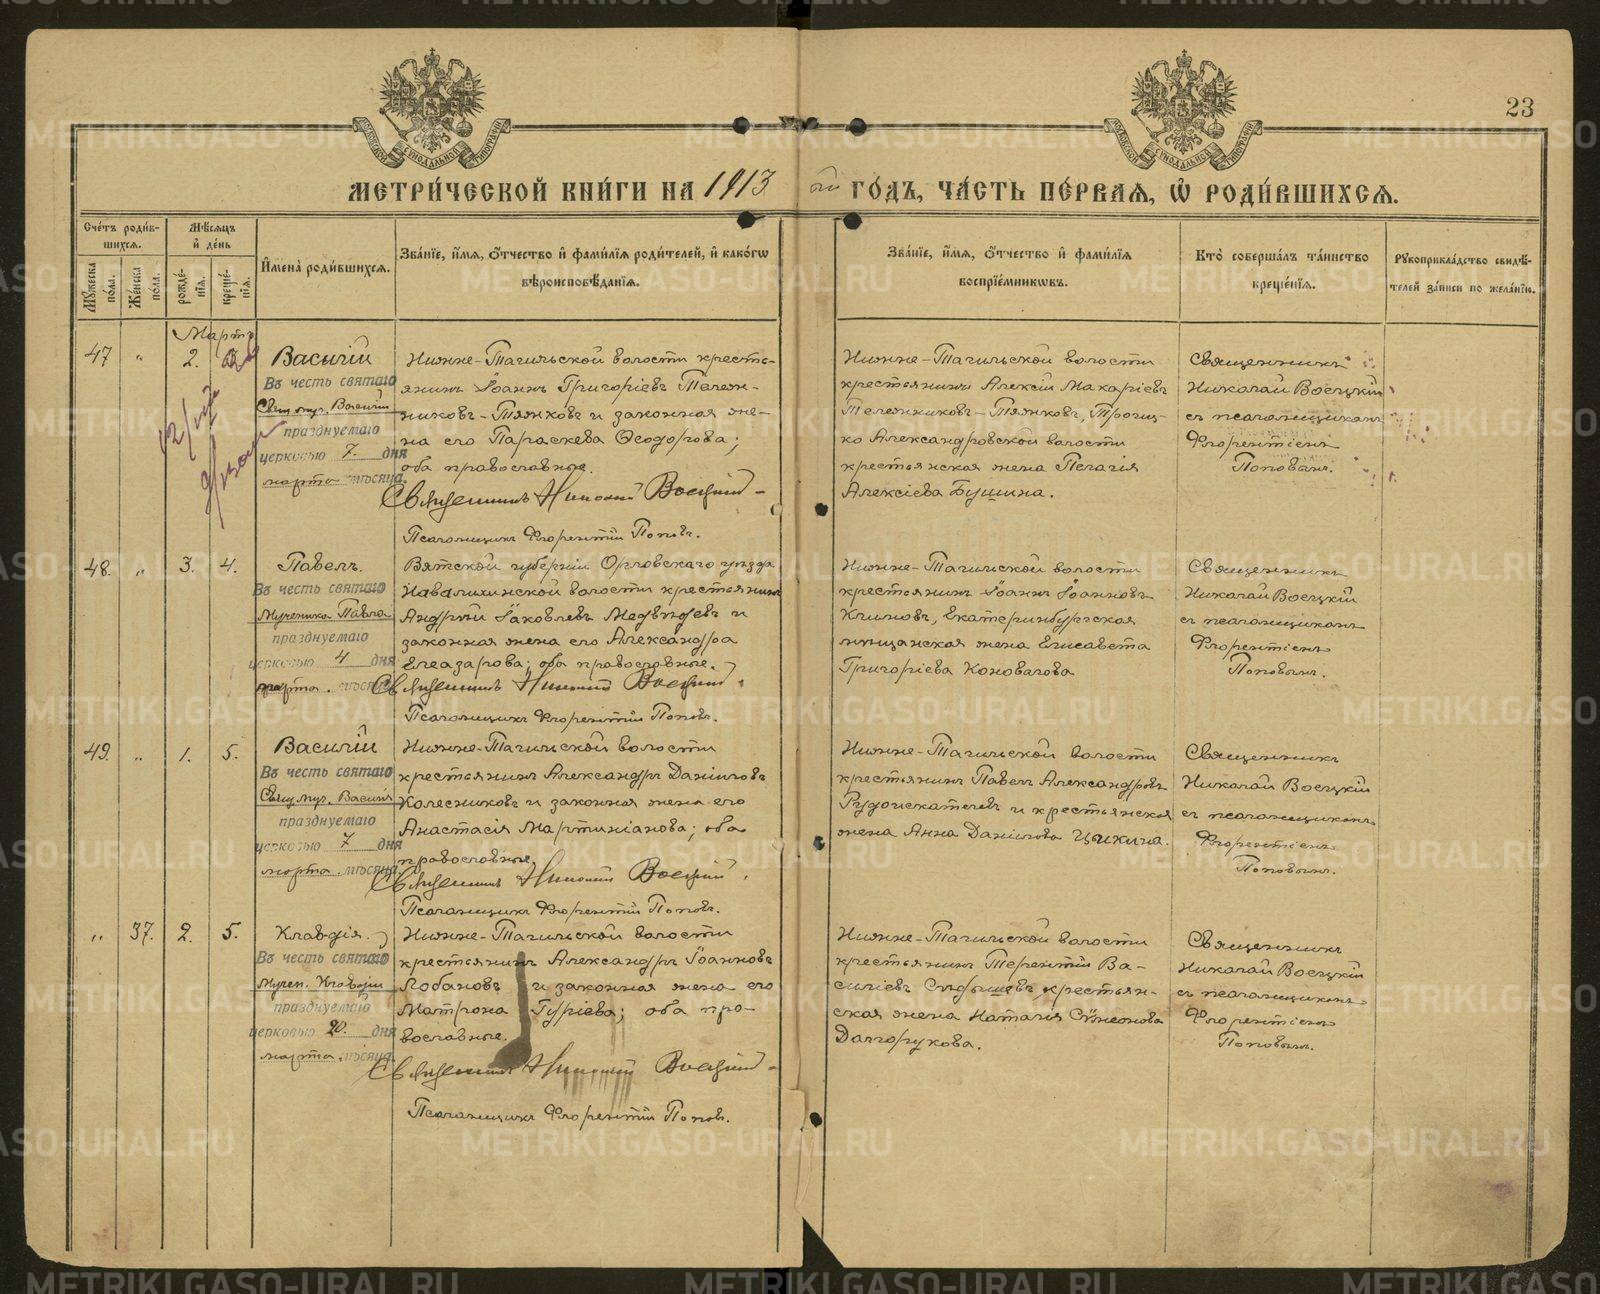 23
МЕТРИ́ЧЕСКОЙ КНИ́ГИ НА 1913 ый ГО́ДЪ, ЧА́СТЬ ПЕ́РВАЯ, Ѡ РОДИ́ВШИХСЯ.
Сче́тъ роди́в-
шихся.
Му́жеска пола.
Же́нска по́ла.
Мѣ́сяцъ
и де́нь
рожде́-
нїя.
креще́-
нїя.
И҆мена̀ роди́вшихся.
Зва́нїе, и҆́мя, ѻ҆́тчество и҆ фами́лїя роди́телей, и҆ како́гѡ
вѣроисповѣ́данїя.
Зва́нїе, и҆́мя, ѻ҆́тчество и҆ фами́лїя
воспрїе́мникѡвъ.
Кто̀ соверша́лъ та́инство
креще́нїя.
Рукоприкла́дство свидѣ́-
телей за́писи по жела́нїю.
Мартъ
47 " 2.
Василій
Въ честь святаго
Свящ. муч. Василія
празднуемаго
церковью 7. дня
марта мѣсяца.
Нижне-Тагильской волости кресть-
янинъ Іоаннъ Григоріевъ Тележ-
никовъ-Тяжковъ и законная же-
на его Параскева Ѳеодорова;
оба православные.
Священникъ Николай Воецкій
Псаломщикъ Флорентій Поповъ.
Нижне-Тагильской волости
крестьянинъ Алексій Макаріевъ
Тележниковъ-Тяжковъ, Троиц-
ко Александровской волости
крестьянская жена Пелагія
Алексіева Бушина.
Священникъ
Николай Воецкій
съ псаломщикомъ
Флорентіемъ
Поповымъ.
48. " 3. 4.
Павелъ.
Въ честь святаго
Мученика Павла
празднуемаго
церковью 4 дня
марта. мѣсяца
Вятской губерніи Орловскаго уѣзда
Навалихинской волости крестьянинъ
Андрей Іаковлевъ Медвѣдевъ и
законная жена его Александра
Елеазарова; оба православные.
Священникъ Николай Воецкій.
Псаломщикъ Флорентій Поповъ.
Нижне-Тагильской волости
крестьянинъ Іоаннъ Іоанновъ
Климовъ, Екатеринбургская
мѣщанская жена Елисавета
Григоріева Коновалова
Священникъ
Николай Воецкій
съ псаломщикомъ
Флорентіемъ
Поповымъ.
49. " 1. 5.
Василій
Въ честь святаго
Свящ. муч. Василія
празднуемаго
церковью 7 дня
марта. мѣсяца.
Нижне-Тагильской волости
крестьянинъ Александръ Даніиловъ
Колесниковъ и законная жена его
Анастасія Мартиніанова; оба
православные.
Священникъ Николай Воецкій.
Псаломщикъ Флорентій Поповъ.
Нижне-Тагильской волости
крестьянинъ Павелъ Александровъ
Рудоискателевъ и крестьянская
жена Анна Даніилова Цикина.
Священникъ
Николай Воецкій
съ псаломщикомъ
Флорентіемъ
Поповымъ.
" 37. 2. 5.
Клавдія.
Въ честь святаго
Мучен. Клавдіи
празднуемаго
церковью 20. дня
марта. мѣсяца.
Нижне-Тагильской волости
крестьянинъ Александръ Іоанновъ
Лобановъ и законная жена его
Матрона Гуріева; оба пра-
вославные.
Священникъ Николай Воецкій
Псаломщикъ Флорентій Поповъ.
Нижне-Тагильской волости
крестьянинъ Терентій Ва-
силіевъ Сѣдышевъ крестьян-
ская жена Наталія Сѵмеонова
Долгорукова.
Священникъ
Николай Воецкій
съ псаломщикомъ
Флорентіемъ
Поповымъ.
METRIKI.GASO-URAL.RU